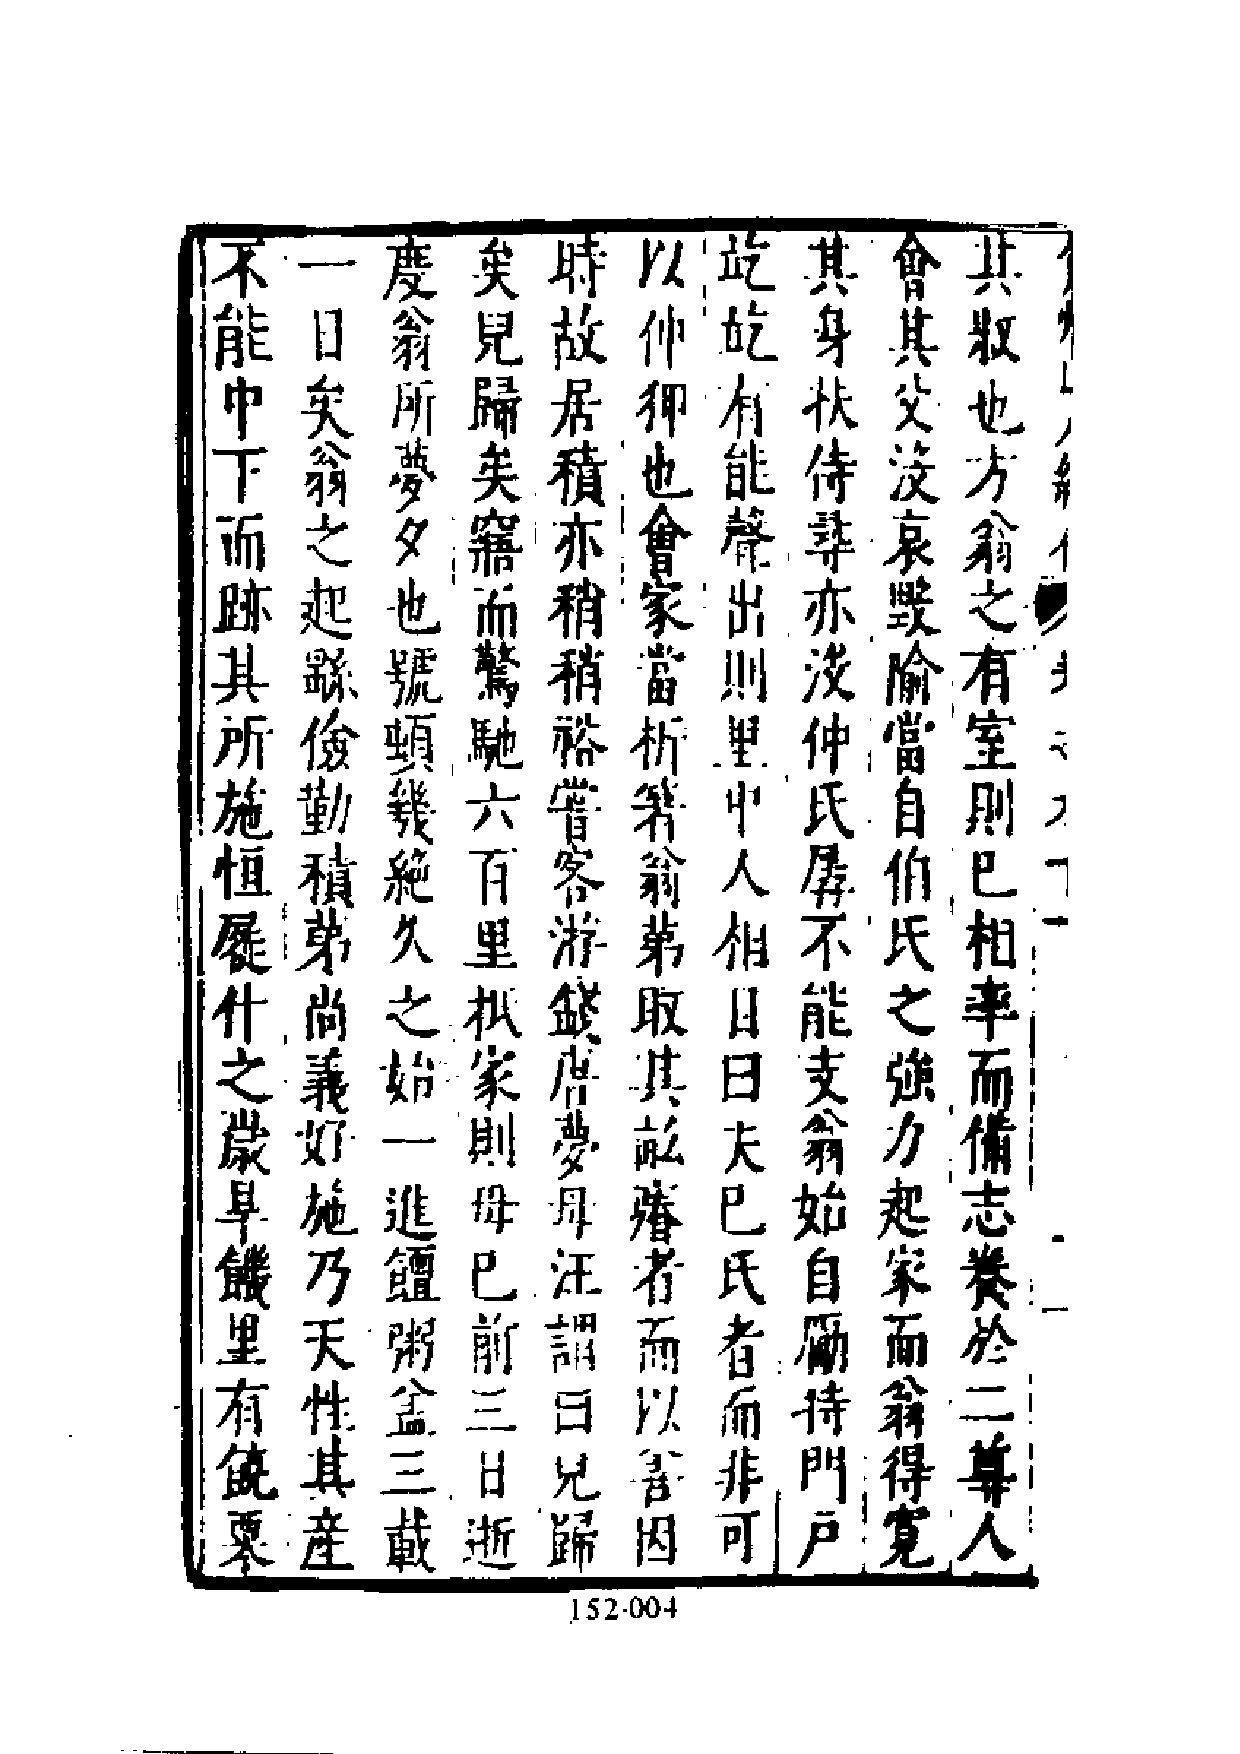 其收也方翁之有室則已相率而備志養於二尊人
會其父沒哀毀踰當自伯氏之強力起家而翁得寬
其身扶侍尋亦沒仲氏孱不能支翁始自勵持門戶
訖訖有能聲出則里中人相目曰夫已氏者而非可
以仲狎也會家當析箸翁第取其訟瘠者而以善因
時故居積亦稍稍裕嘗客游錢唐夢母汪謂曰兒歸
矣兒歸矣寤而驚馳六百里抵家則母已前三日逝
度翁所夢夕也號頓幾絕久之始一進饘粥盆三載
一日矣翁之起繇儉勤積第尚義好施乃天性其產
不能中下而跡其所施恒屣什之歲旱饑里有餽
152-004